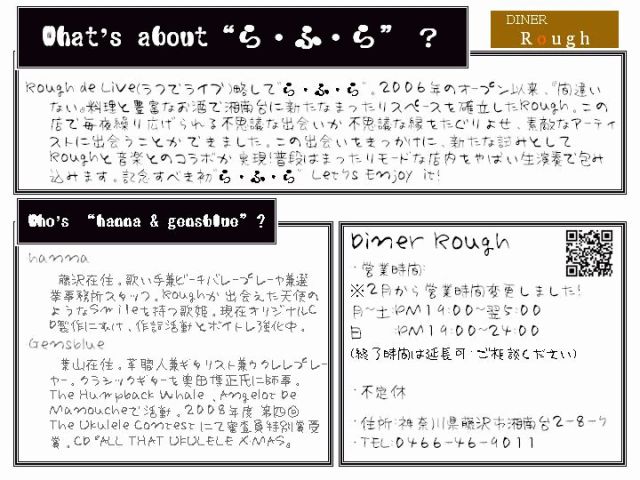 What's about “ら・ふ・ら” ?
DINER
Rough
Rough de Live(らフでライブ)略して“ら・ふ・ら”。2006年のオープン以来、『間違い
ない』料理と豊富なお酒で湘南台に新たなまったりスペースを確立したRough。この
店で毎夜繰り広げられる不思議な出会いが不思議な縁をたぐりよせ、素敵なアーティ
ストに出会うことができました。この出会いをきっかけに、新たな試みとして
Roughと音楽とのコラボが実現!普段はまったりモードな店内をやばい生演奏で包み
込みます。記念すべき初“ら・ふ・ら” Let's Enjoy it!
Who's “hanna & gensblue”?
hanna
藤沢在住。歌い手兼ビーチバレープレーヤ兼選
挙事務所スタッフ。Roughが出会えた天使の
ようなSmileを持つ歌姫。現在オリジナルC
D製作にむけ、作詞活動とボイトレ強化中。
Gensblue
葉山在住。革職人兼ギタリスト兼ウクレレプレー
ヤー。クラシックギターを奥田博正氏に師事。
The Humpback Whale、Angelot De
Manoucheで活動。2008年度 第四回
The Ukulele Contestにて審査員特別賞受
賞。CD『ALL THAT UKULELE X-MAS』
Diner Rough
・営業時間:
※2月から営業時間変更しました!
月~土:PM19:00~翌5:00
日 :PM19:00~24:00
(終了時間は延長可・ご相談ください)
・不定休
・住所:神奈川県藤沢市湘南台2-8-
・TEL:0466-46-9011